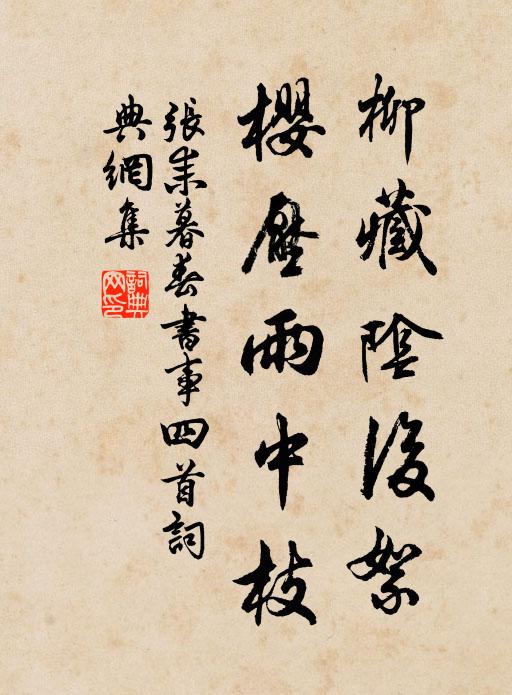 柳藏陰後絮
櫻壓雨中枝
張耒暮春書事四首詞
典網集
詞典
网印